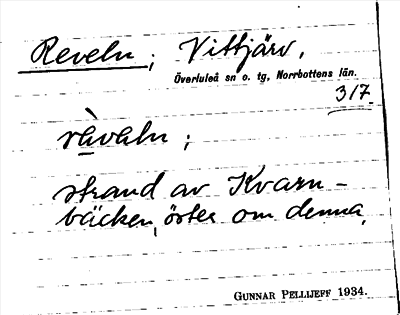 Reveln; Vittjärv,
Överluleå sn o. tg, Norrbottens län.
317
rèvəln;
strand av Kvarn-
bäcken, öster om denna.
GUNNAR PELLIJEFF 1934.